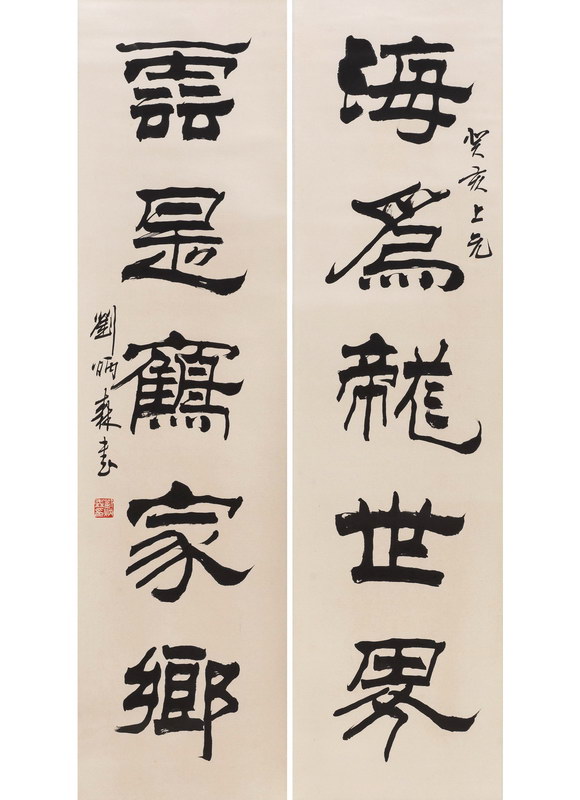 癸亥上元
海為龍世界
雲是鶴家鄉
劉炳森書